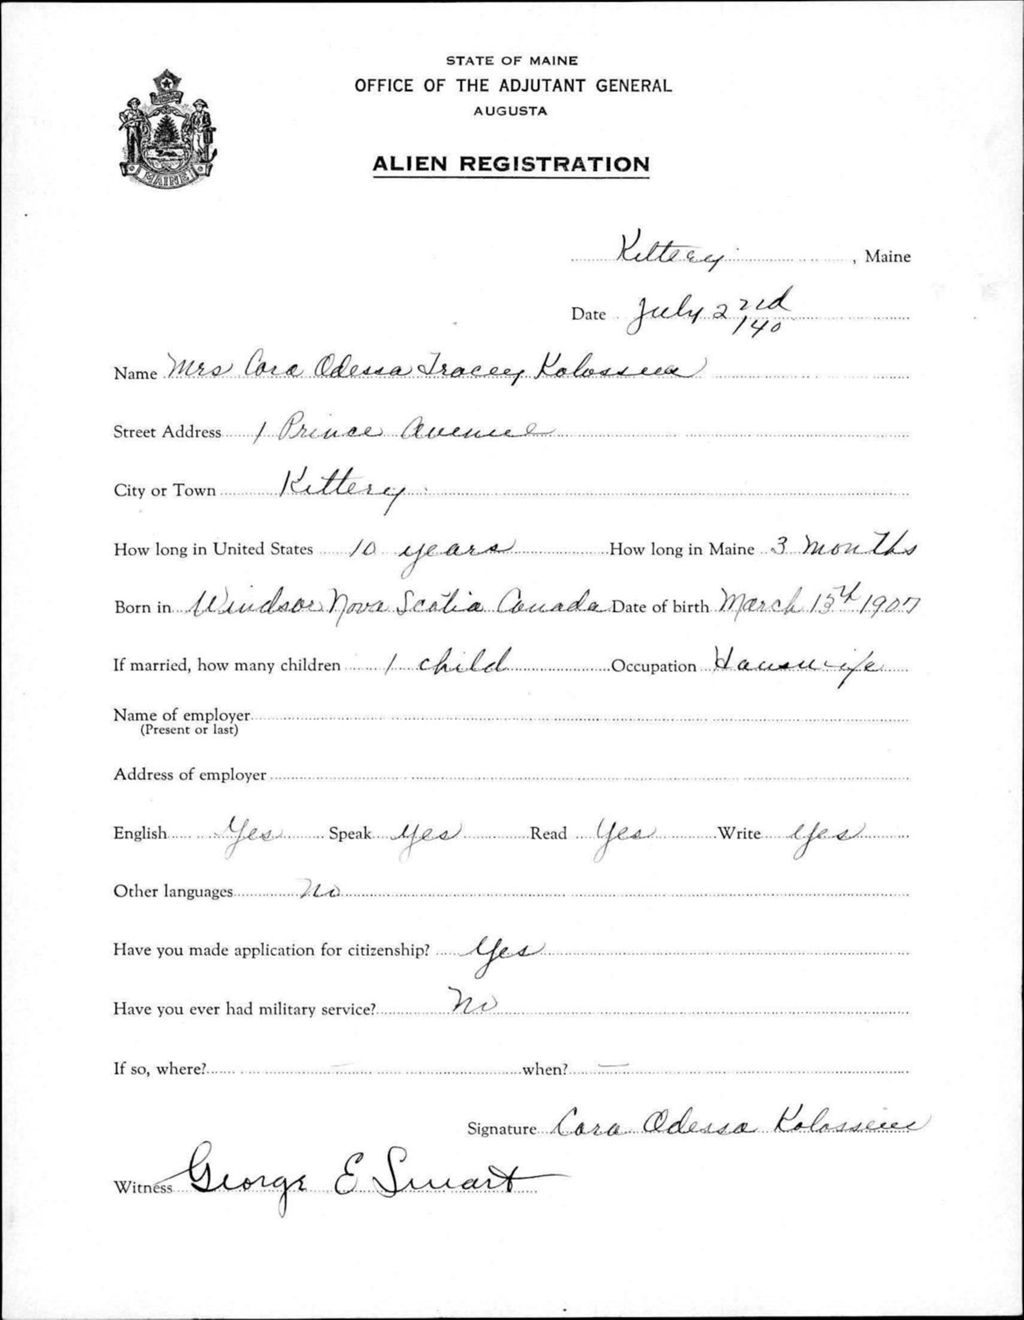 STATE OF MAINE
OFFICE OF THE ADJUTANT GENERAL
AUGUSTA
ALIEN REGISTRATION
MAINE
Kittery, Maine
Date July 2nd /40
Name Mrs Cora Odessa Tracey Kolosseus
Street Address 1 Prince Avenue
City or Town Kittery
How long in United States 10 years How long in Maine 3 months
Born in Windsor Nova Scotia Canada Date of birth March 13th 1907
If married, how many children 1 child Occupation Housewife
Name of employer
(Present or last)
Address of employer
English Yes Speak Yes Read Yes Write Yes
Other languages No
Have you made application for citizenship? Yes
Have you ever had military service? No
If so, where? — when? —
Signature Cora Odessa Kolosseus
Witness George E Swart